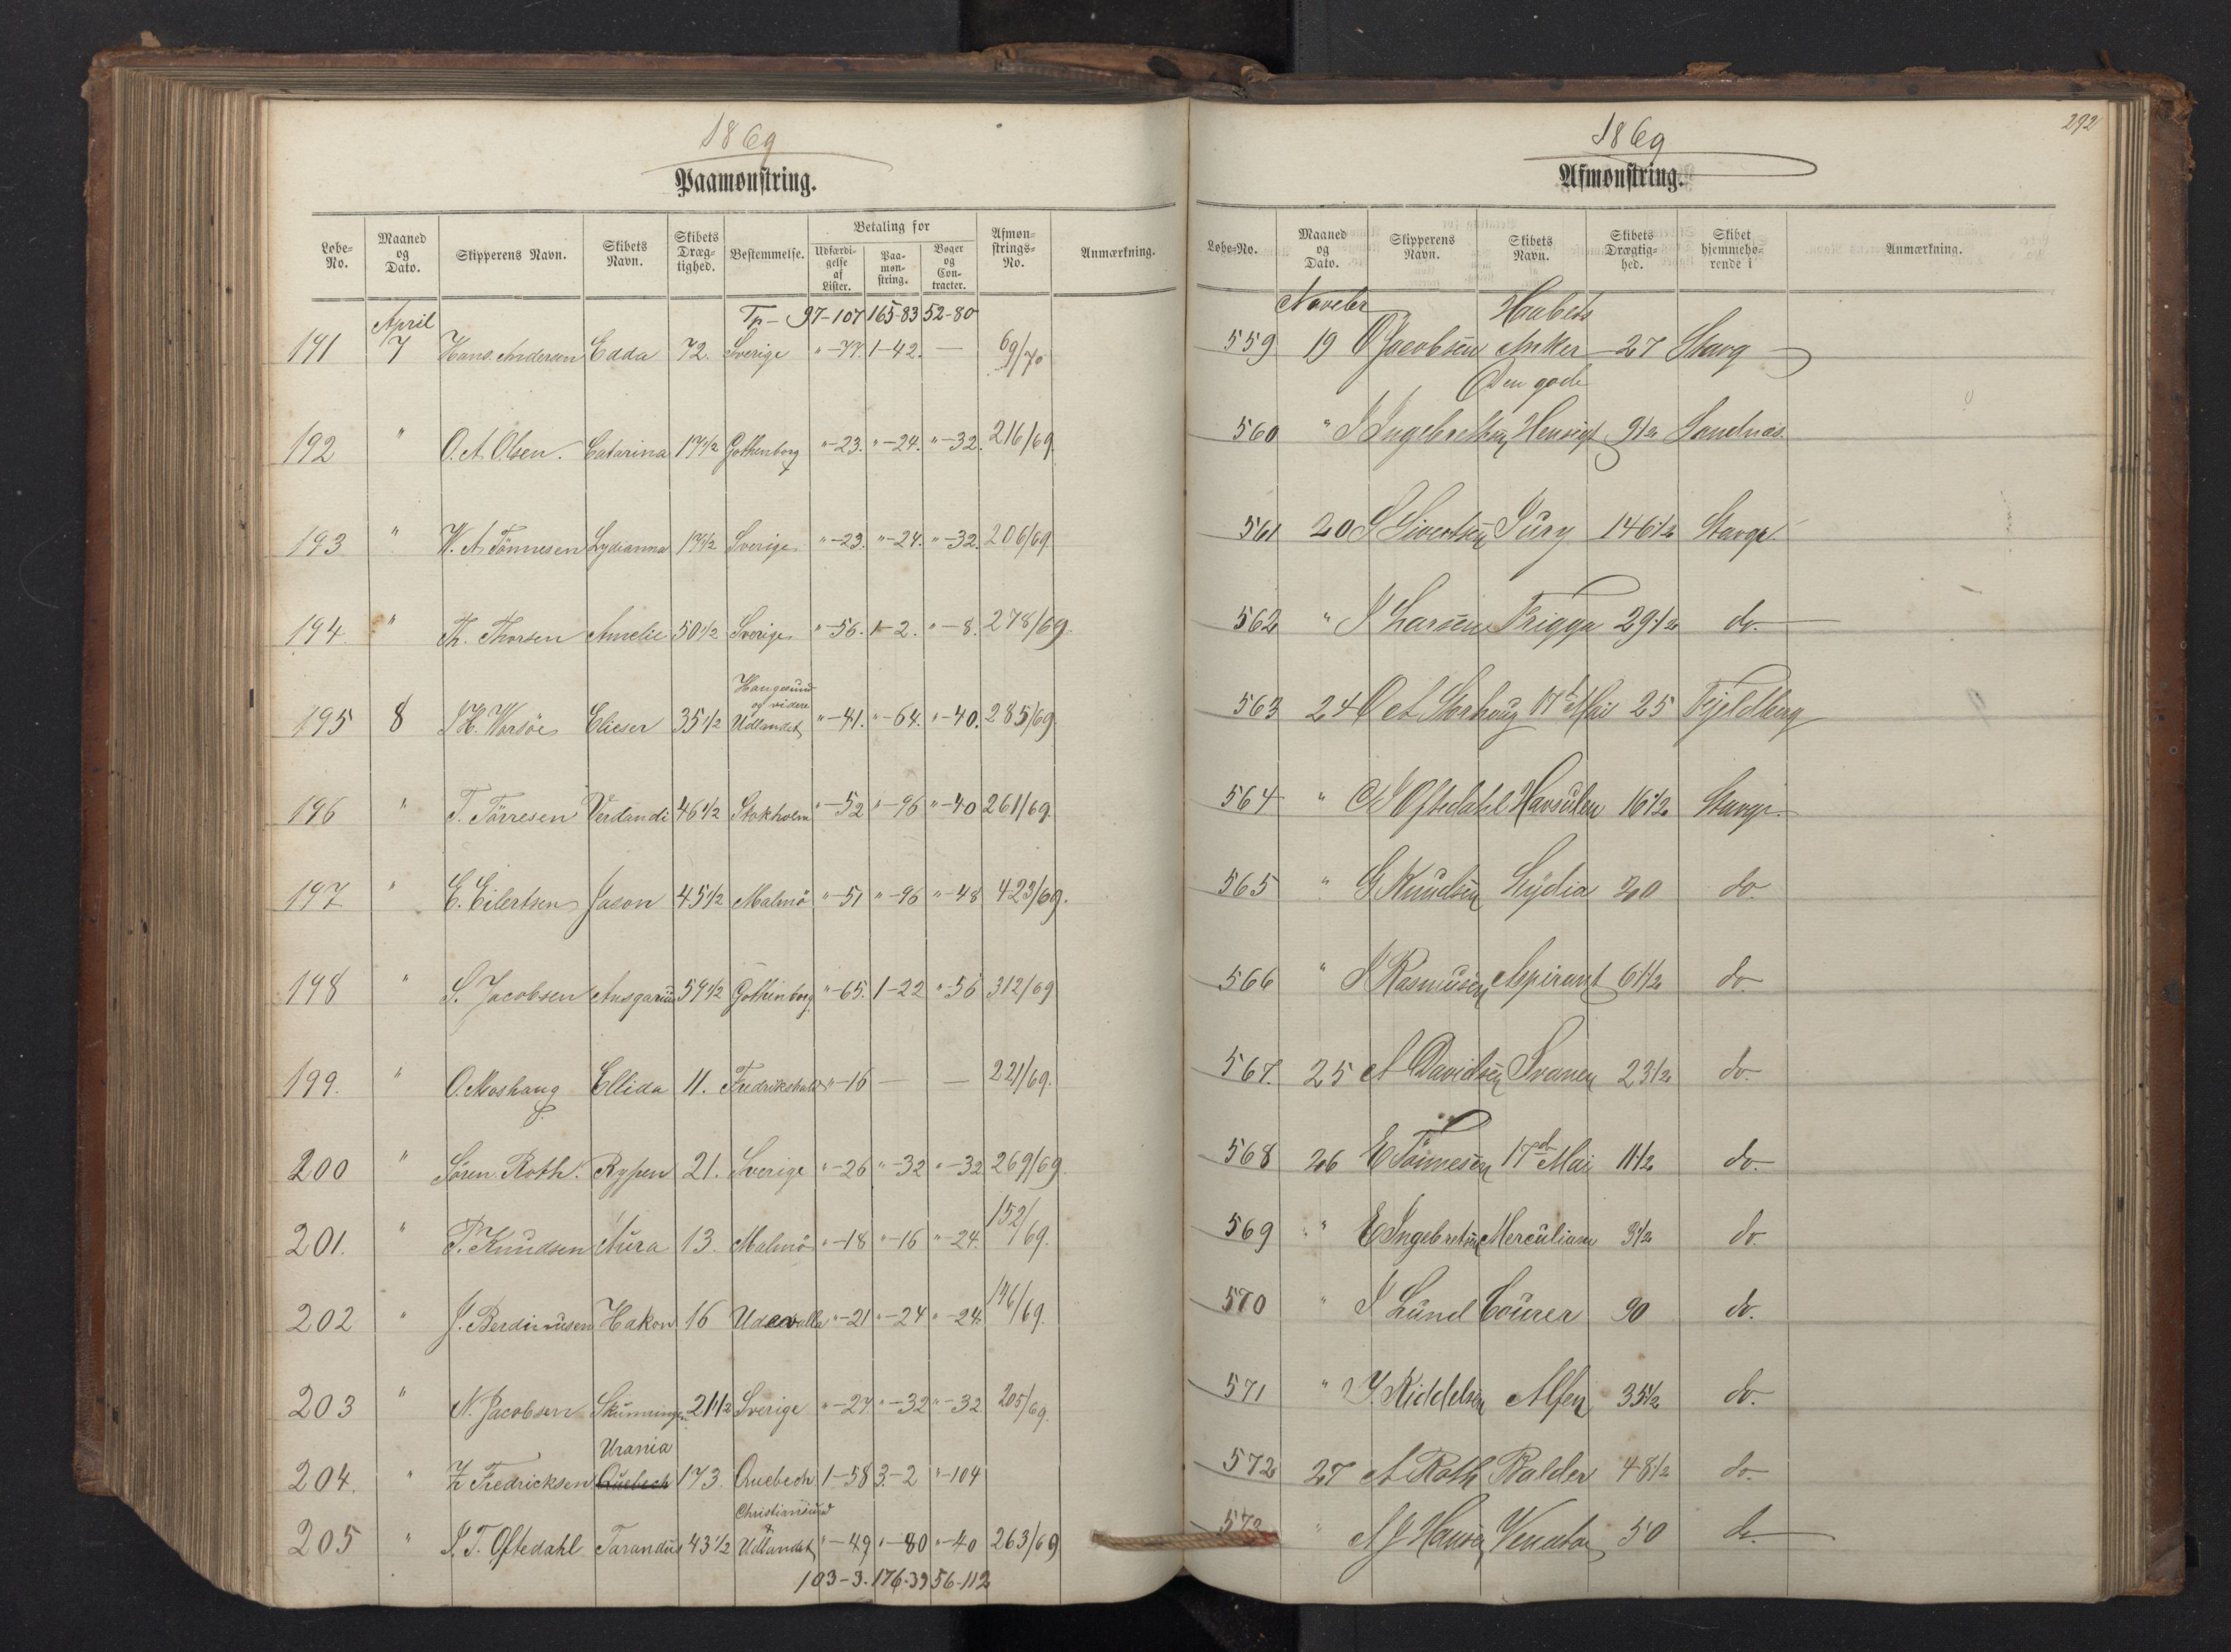 1869
Paamønstring.
Løbe-No. Maaned og Dato. Skipperens Navn. Skibets Navn. Skibets Dræg-tighed. Bestemmelse. Betaling for Udfærdi-gelse af Lister. Paa-møn-string. Bøger og Con-tracter. Afmøn-strings-No. Anmærkning.
April Tp- 97-107 165-83 52-80
191 7 Hans Andersen Edda 72. Sverige "-77 1-42. — 69/70
192 " O. A. Olsen. Catarina 17 1/2 Gothenborg "-23. "-24. "-32. 216/69.
193 " W. A. Tönnesen Lydianna 17 1/2 Sverige "-23. "-24. "-32. 206/69.
194 " Th. Thorsen Amelie 50 1/2 Sverige "-56. 1-2. "-8. 278/69.
Haugesund og videre
195 8 H. Worsöe Elieser 35 1/2 Udlandet "-41. "-64. "-40. 285/69.
196 " T. Törresen Verdandi 46 1/2 Stokholm "-52 "-96 "-40 261/69.
197 " E. Eilertsen Jason 45 1/2 Malmö "-51 "-96 "-48 423/69.
198 " S. Jacobsen Ansgarius 59 1/2 Gothenborg "-65. 1-22 "-56 312/69
199. " O. Moshaug Ellida 11. Fredrikshald "-16 — — 221/69.
200 " Sören Roth. Rypen 21. Sverige "-26 "-32 "-32 269/69.
201. " T. Knudsen Aura 13. Malmö "-18 "-16 "-24. 152/69.
202 " J. Berdinusen Hakon 16 Udevalla "-21 "-24 "-24. 146/69.
203 " N. Jacobsen 21 1/2 Sverige "-27 "-32 "-32 205/69.
Urania
204. " Fredricksen Quebech 173. Quebech 1-58 3-2 "-104
Christiansund &
205 " J. T. Oftedahl Tarandus 43 1/2 Udlandet "-49 "-80 "-40 263/69
103-3. 176-39 56-112
292
1869
Afmønstring.
Løbe-No. Maaned og Dato. Skipperens Navn. Skibets Navn. Skibets Drægtig-hed. Skibet hjemmehø-rende i Anmærkning.
Novebr Haabets
559 19 O Jacobsen Anker 27 Stavg
Den gode
560 " I Ingebretsen Hensigt 9 1/2 Sandnæs.
561 20 S Sivertsen Jury 146 1/2 Stavgr.
562 " J Larsen Frigga 29 1/2 do.
563 24 O A Storhoug 17 d Mai 25 Fjeldberg
564 " O J Oftedahl Havsulen 16 1/2 Stavgr.
565 " G Knudsen Lydia 20 do.
566 " J Rasmusen Aspirant 61 1/2 do.
567. 25 A Davidsen Svanen 23 1/2 do.
568 26 E Tönnesen 17 d Mai 11 1/2 do.
569 " E Ingebretsen Merculiane 3 1/2 do.
570 " J Lund Courer 90 do.
571 " Y. Riddelsen Alfen 35 1/2 do.
572 27 A Roth Balder 48 1/2 do.
573 " A J Hansen Venator 50 do.